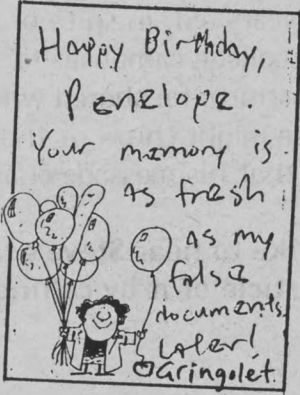 Happy Birthday,
Penelope.
Your memory is
as fresh
as my
false
documents.
Later!
Gringolet.